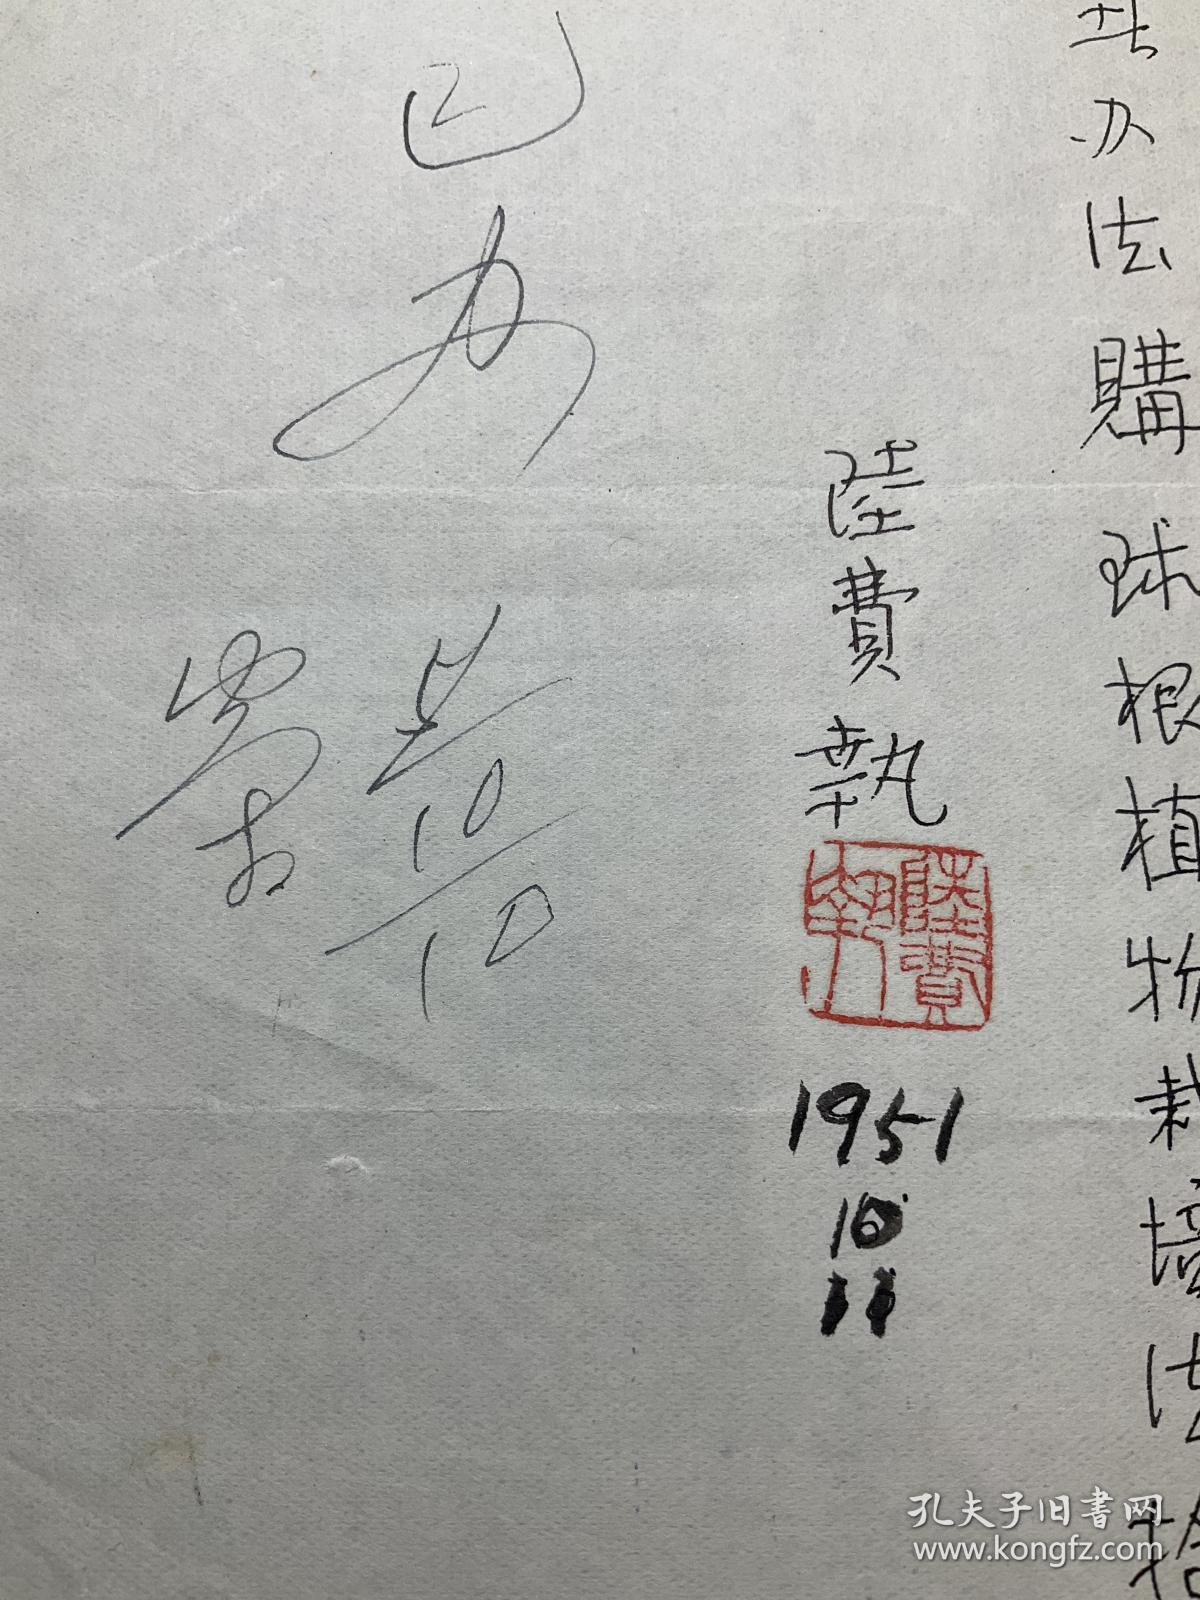 办法購球根植物栽培法
陸費執
陸費執
1951
10
11
已办
10
10
孔夫子旧书网
www.kongfz.com